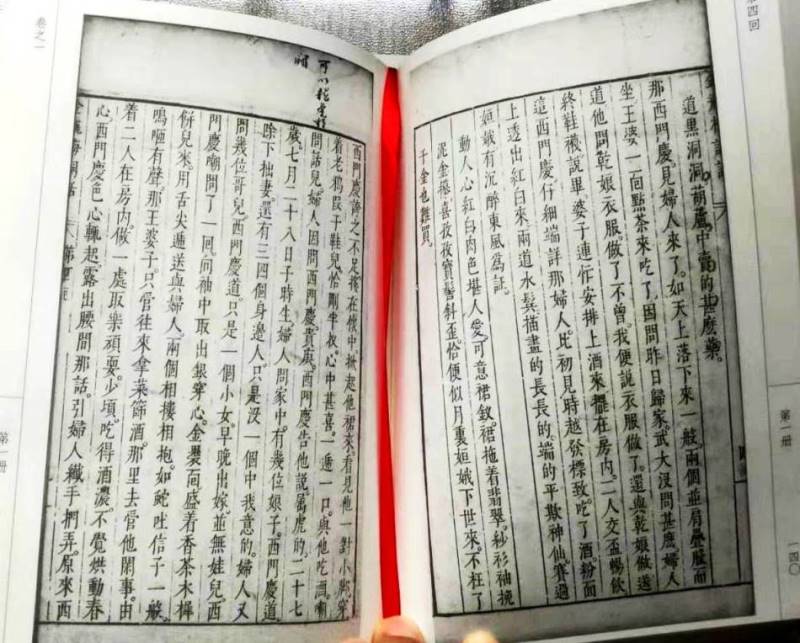 第四回
道黑洞洞葫蘆中賣的甚麼藥。
那西門慶見婦人來了。如天上落下來一般。兩個並肩疊股而
坐王婆一面點茶來吃了。因問昨日歸家武大沒問甚麼婦人
道他問乾娘衣服做了不曾。我便說衣服做了。還與乾娘做送
終鞋襪說畢婆子連忙安排上酒來擺在房内。二人交盃暢飲
這西門慶仔細端詳那婦人。比初見時越發標致。吃了酒粉面
上透出紅白來。兩道水鬢描畫的長長的。端的平欺神仙賽過
姮娥有沉醉東風爲証。
動人心紅白肉色堪人愛。可意裙釵。裙拖着翡翠。紗衫袖挽
泥金。喜孜孜寶髻斜歪。恰便似月裏姮娥下世來。不枉了
千金也難買。
第一册
一四〇
西門慶誇之不足摟在懷中掀起他裙來。看見他一對小脚穿
着老鴉段子鞋兒恰剛半扠。心中甚喜。一遞一口。與他吃酒。嘲
問話兒。婦人因問西門慶貴庚。西門慶告他說屬虎的。二十七
歲。七月二十八日子時生。婦人問家中。有幾位娘子。西門慶道
除下拙妻。還有三四個身邊人。只是没一個中我意的。婦人又
問幾位哥兒。西門慶道。只是一個小女。早晚出嫁。並無娃兒。西
門慶嘲問了一回。向袖中取出銀穿心。金裹面。盛着香茶木樨
餅兒來。用舌尖遞送與婦人。兩個相摟相抱。如蛇吐信子一般。
嗚咂有聲。那王婆子只管往來拿菜篩酒。那里去管他閑事。由
着二人在房内。做一處取樂頑耍。少頃。吃得酒濃。不覺烘動春
心。西門慶色心輒起。露出腰間那話。引婦人纖手捫弄。原來西
卷之一
第一册